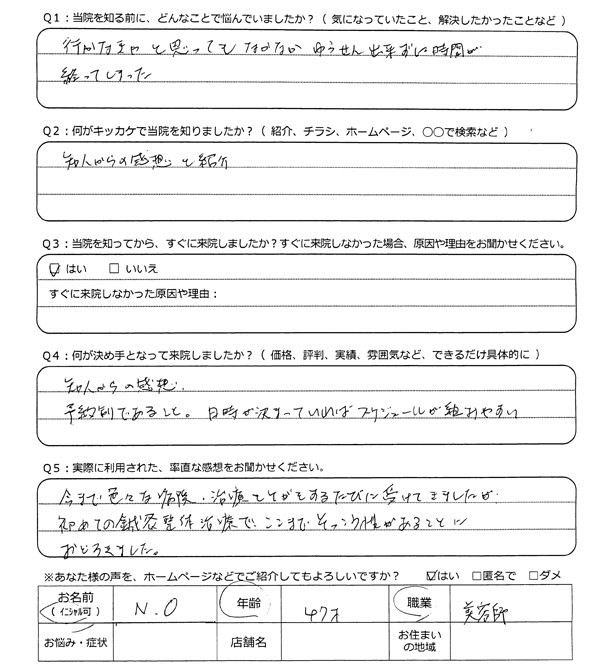 Q1：当院を知る前に、どんなことで悩んでいましたか？（ 気になっていたこと、解決したかったことなど ）
行かなきゃと思ってもなかなかゆうせん出来ずに時間が
経ってしまった
Q2：何がキッカケで当院を知りましたか？（ 紹介、チラシ、ホームページ、〇〇で検索など ）
知人からの感想と紹介
Q3：当院を知ってから、すぐに来院しましたか？すぐに来院しなかった場合、原因や理由をお聞かせください。
☑ はい □ いいえ
すぐに来院しなかった原因や理由：
Q4：何が決め手となって来院しましたか？（ 価格、評判、実績、雰囲気など、できるだけ具体的に ）
知人からの感想。
予約制であること。日時が決まっていればスケジュールが組みやすい
Q5：実際に利用された、率直な感想をお聞かせください。
今まで色々な病院・治療をケガをするたびに受けてきましたが
初めての鍼灸整体治療で、ここまでそっこう性があることに
おどろきました。
※あなた様の声を、ホームページなどでご紹介してもよろしいですか？ ☑はい □匿名で □ダメ
お名前 N.O 年齢 47才 職業 美容師
（ｲﾆｼｬﾙ可）
お悩み・症状 店舗名 お住まい
の地域